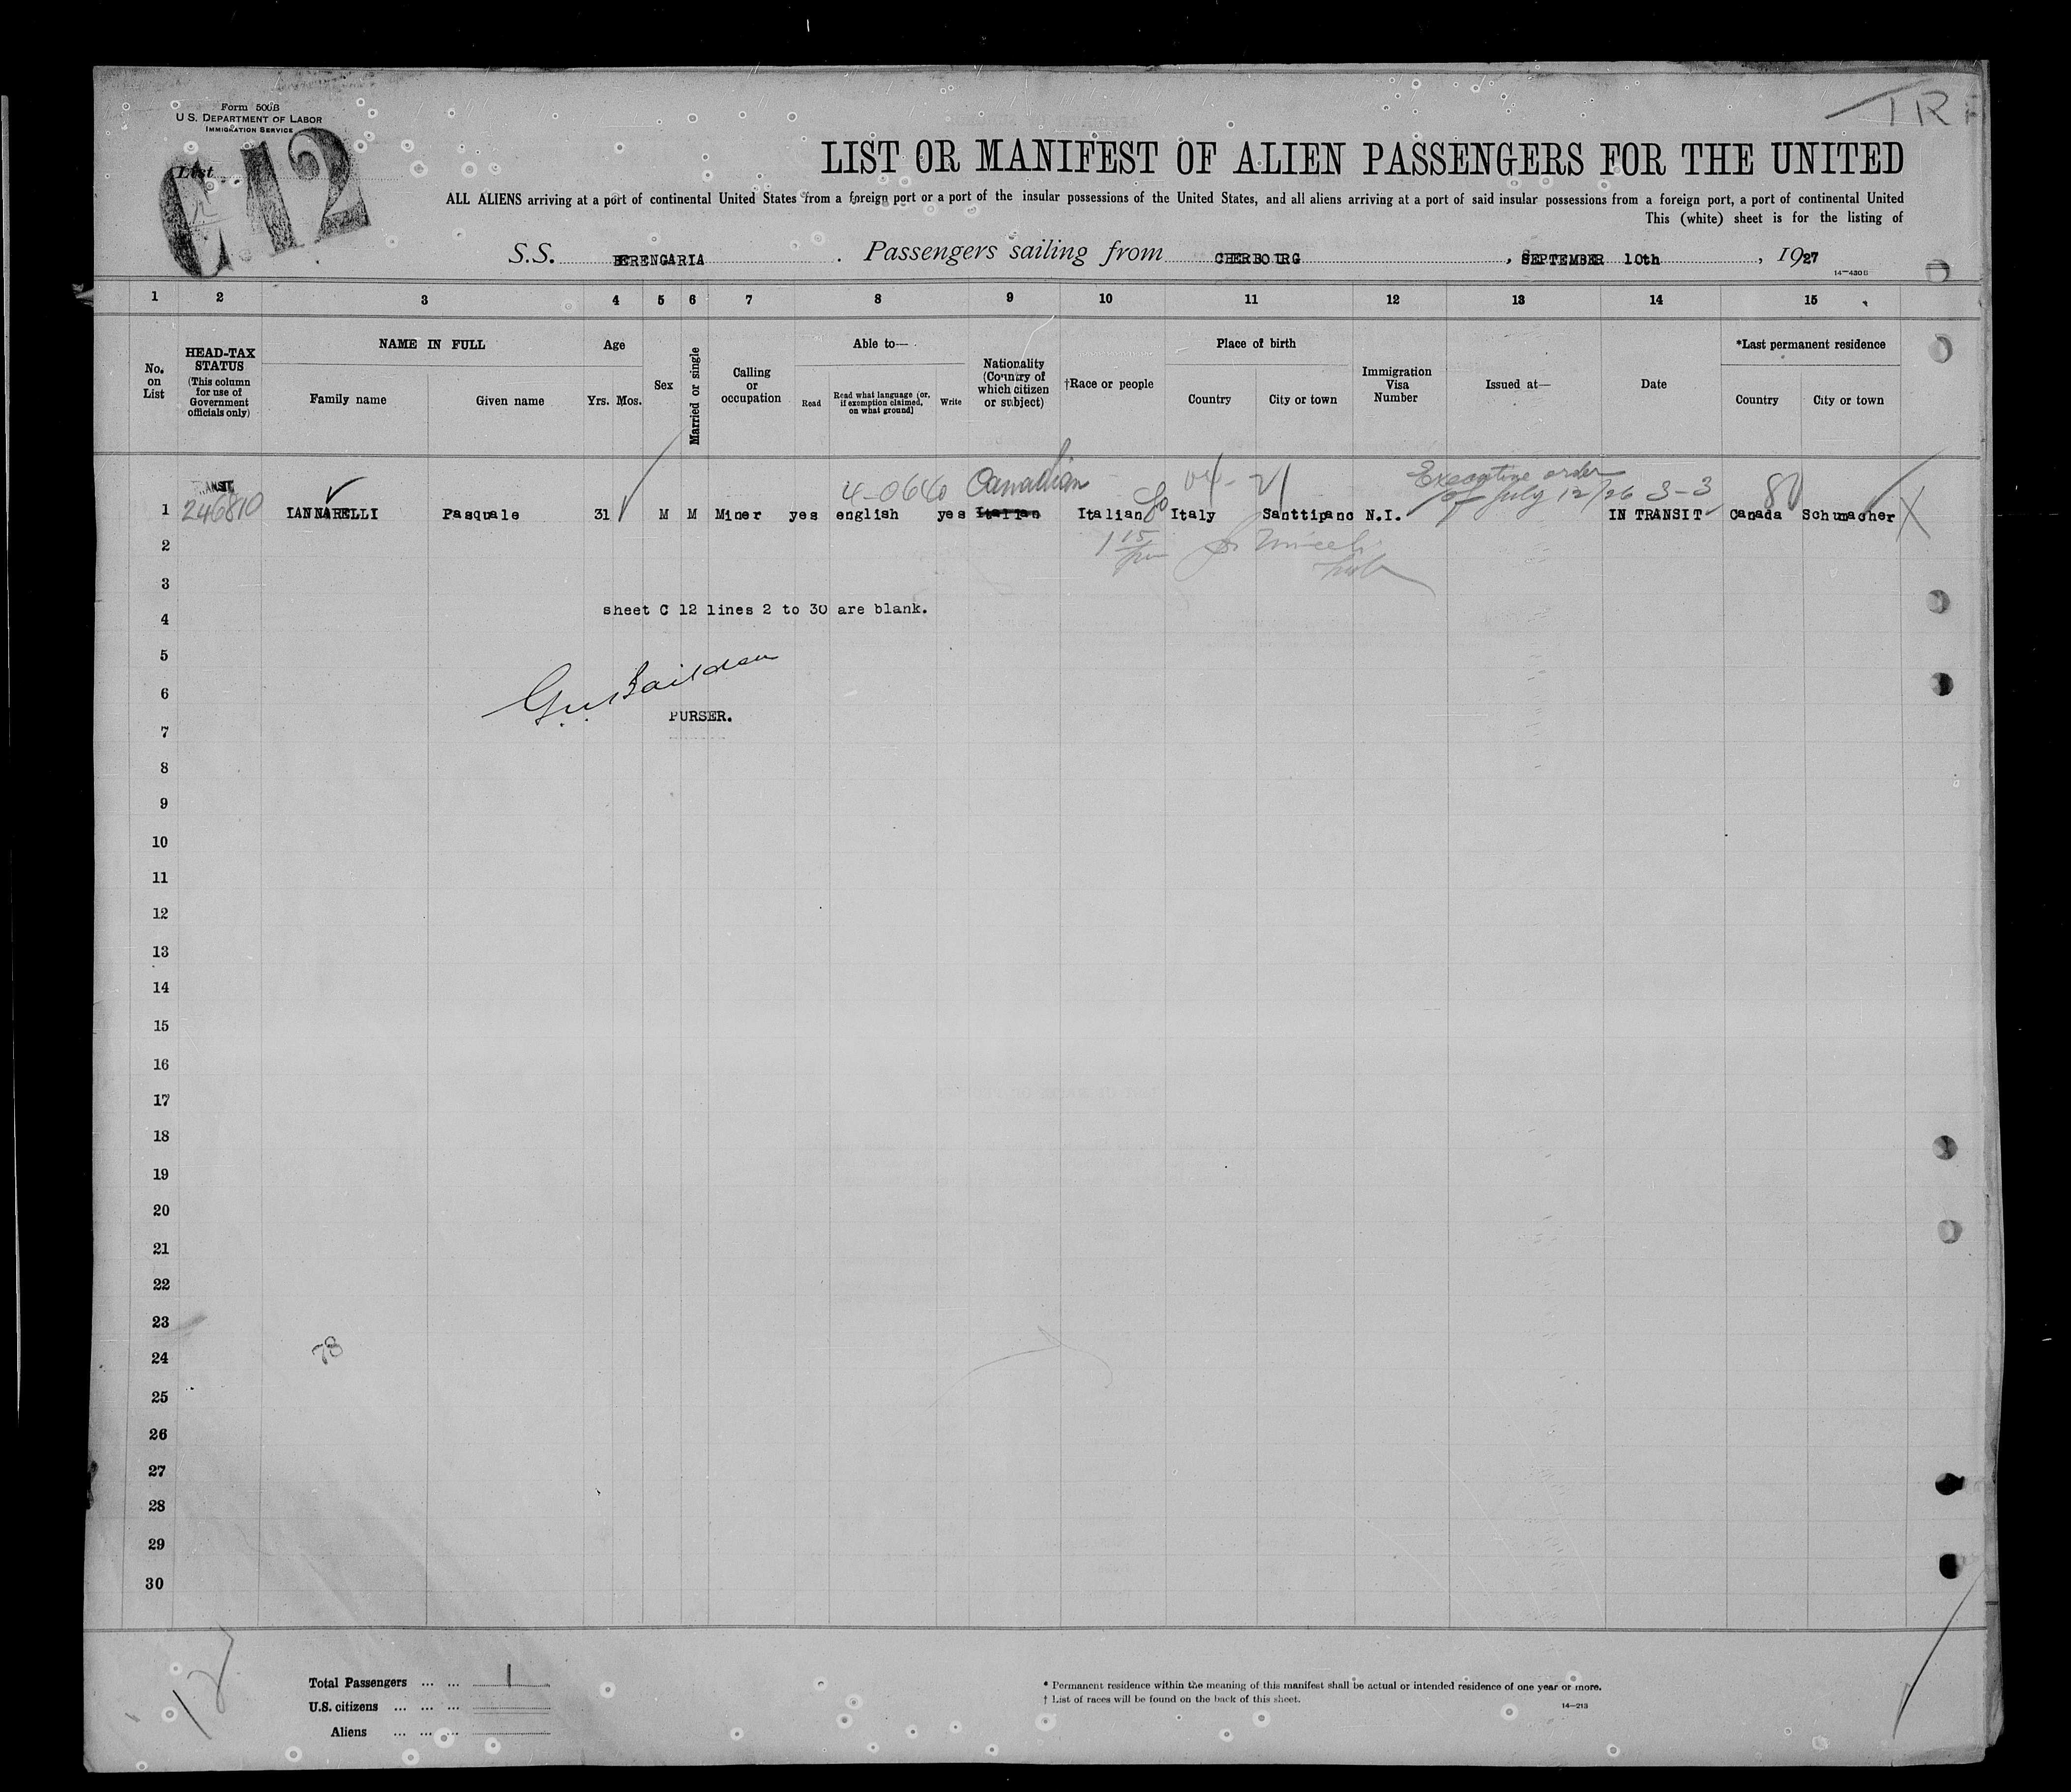 TR
Form 500B
U.S. DEPARTMENT OF LABOR
IMMIGRATION SERVICE
List
C 12
LIST OR MANIFEST OF ALIEN PASSENGERS FOR THE UNITED
ALL ALIENS arriving at a port of continental United States from a foreign port or a port of the insular possessions of the United States, and all aliens arriving at a port of said insular possessions from a foreign port, a port of continental United
This (white) sheet is for the listing of
S.S. BERENGARIA . Passengers sailing from CHERBOURG , SEPTEMBER 10th , 1927
14—430B
1 2 3 4 5 6 7 8 9 10 11 12 13 14 15
No. on List
HEAD-TAX STATUS (This column for use of Government officials only)
NAME IN FULL
Family name Given name
Age
Yrs. Mos.
Sex
Married or single
Calling or occupation
Able to—
Read
Read what language (or, if exemption claimed, on what ground)
Write
Nationality (Country of which citizen or subject)
†Race or people
Place of birth
Country City or town
Immigration Visa Number
Issued at—
Date
*Last permanent residence
Country City or town
4-0640 Canadian 04-21 Executive order
of July 12/26 3-3 80
1 246810 IANNARELLI Pasquale 31 M M Miner yes english yes Italian Italian Italy Santtipano N.I. IN TRANSIT Canada Schumacher X
2
3
sheet C 12 lines 2 to 30 are blank.
4
5
6
PURSER.
7
8
9
10
11
12
13
14
15
16
17
18
19
20
21
22
23
24 78
25
26
27
28
29
30
Total Passengers ... ... 1
U.S. citizens ... ... ...
Aliens ... ... ...
* Permanent residence within the meaning of this manifest shall be actual or intended residence of one year or more.
† List of races will be found on the back of this sheet.
14—213